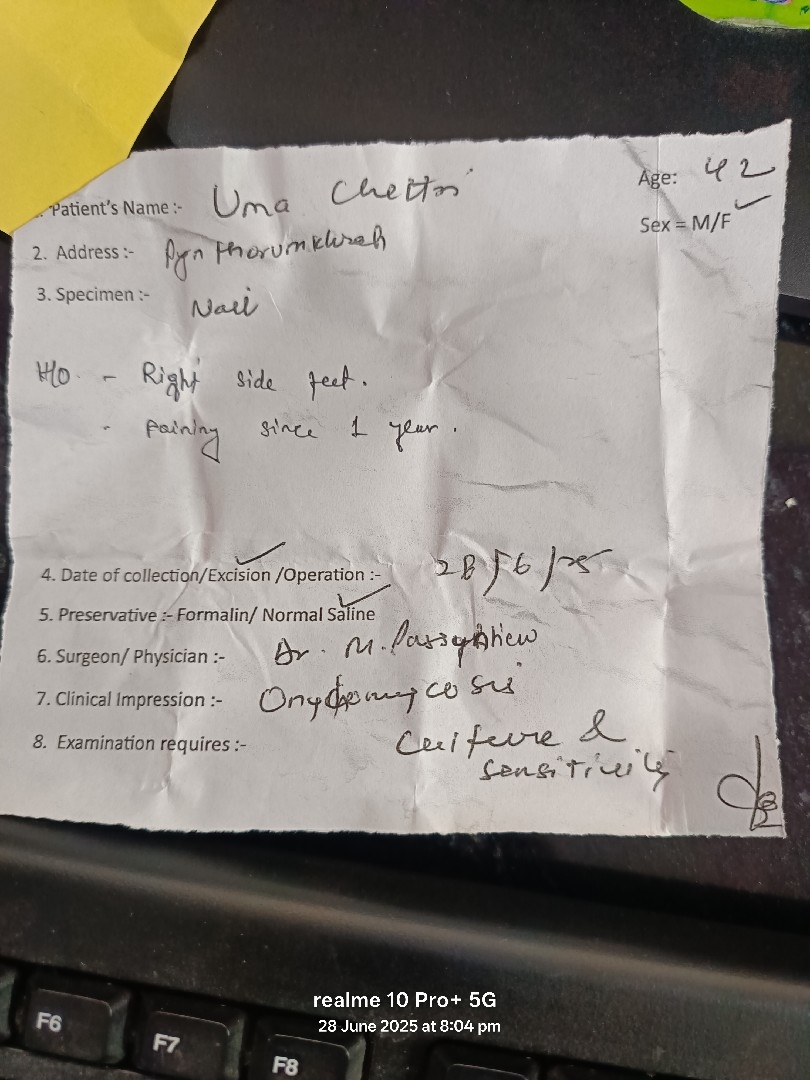 . Patient's Name :- Uma Chettri
Age: 42
Sex = M/F
2. Address :- Pynthorumkhrah
3. Specimen :- Nail
H/O - Right side feet.
- Paining since 1 year.
4. Date of collection/Excision /Operation :- 28/6/25
5. Preservative :- Formalin/ Normal Saline
6. Surgeon/ Physician :- Dr. M.
7. Clinical Impression :- Onychomycosis
8. Examination requires :- Culture &
sensitivity
realme 10 Pro+ 5G
28 June 2025 at 8:04 pm
F6
F7
F8